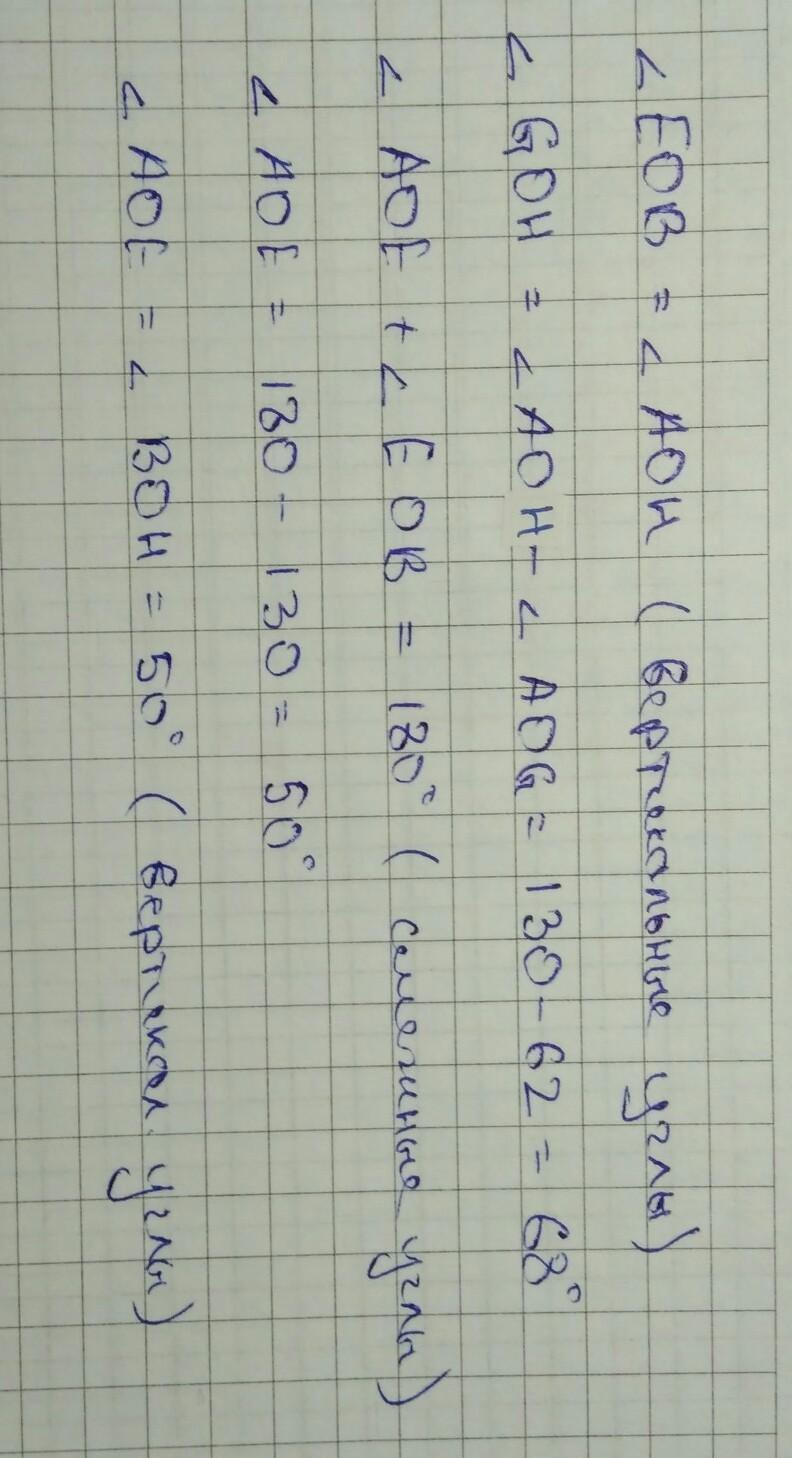 ∠ EOB = ∠ AOH ( вертикальные углы)
∠ GOH = ∠ AOH - ∠ AOG = 130 - 62 = 68°
∠ AOE + ∠ EOB = 180° ( смежные углы)
∠ AOE = 180 - 130 = 50°
∠ AOE = ∠ BOH = 50° ( вертикал. углы)